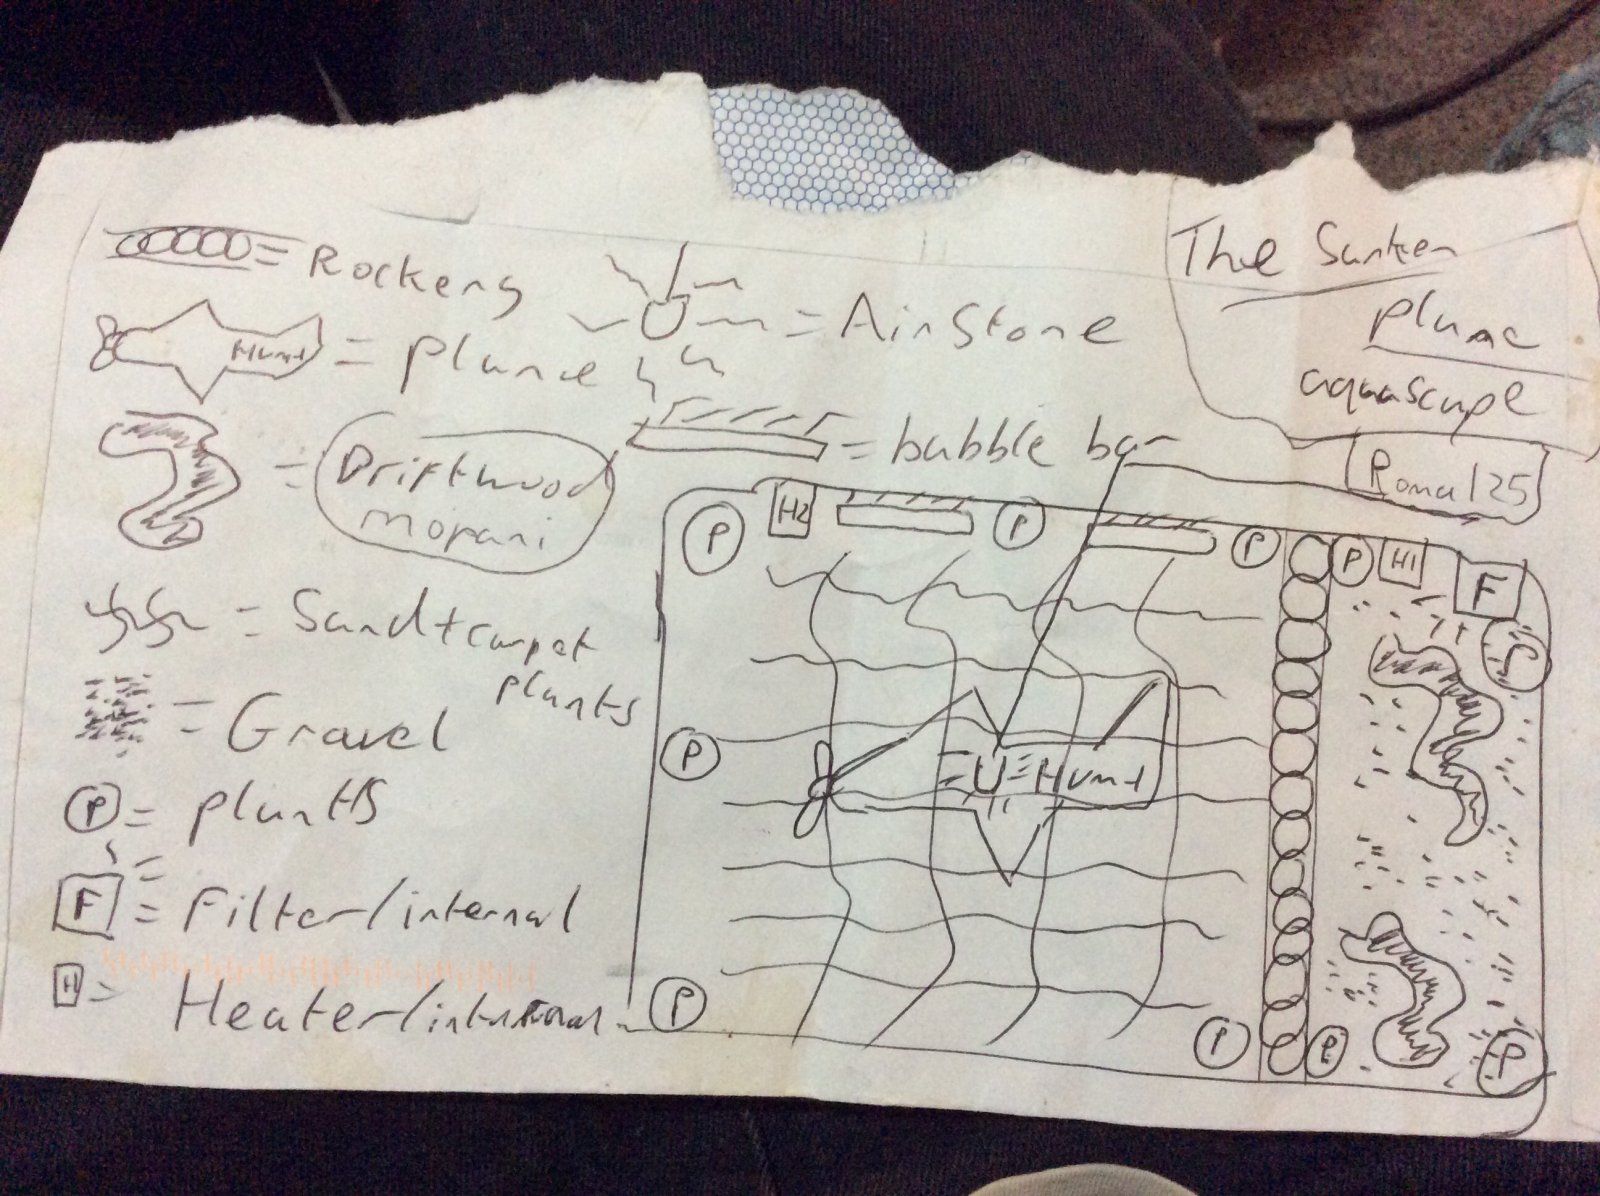 The Sunken
plane
aquascape
Roma 125
= Rockery
= AirStone
Hum1
= plane
= bubble bar
= Driftwood
mopani
= Sand + carpet
plants
= Gravel
P = plants
F = Filter/internal
H = Heater/internal
P H2 P P P H1 F
P = U = Hum1
P P P P